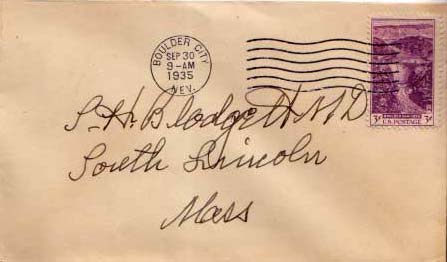 BOULDER CITY
SEP 30
9-AM
1935
NEV.
S. H. Blodgett M D
South Lincoln
Mass
BOULDER DAM 1935
3¢ U.S. POSTAGE 3¢